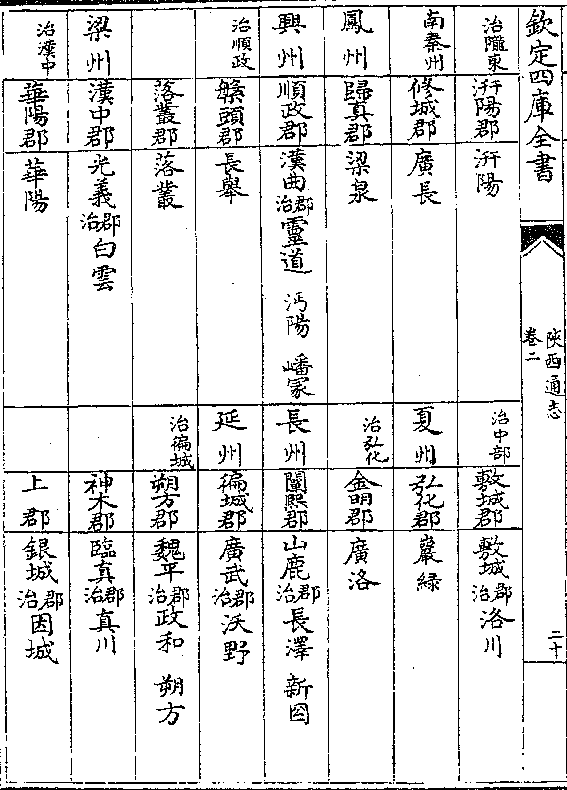 欽定四庫全書
陜西通志
卷二
二十
治隴東 汧陽郡 汧陽
南秦州 修城郡 廣長
鳳州 歸真郡 梁泉
興州 順政郡 漢曲郡治 靈道 沔陽 嶓冢
治順政 槃頭郡 長舉
落叢郡 落叢
梁州 漢中郡 光義郡治 白雲
治漢中 華陽郡 華陽
治中部 敷城郡 敷城郡治 洛川
夏州 弘化郡 巖緑
治弘化 金明郡 廣洛
長州 闡熙郡 山鹿郡治 長澤 新囶
延州 徧城郡 廣武郡治 沃野
治徧城 朔方郡 魏平郡治 政和 朔方
神木郡 臨真郡治 真川
上郡 銀城郡治 因城